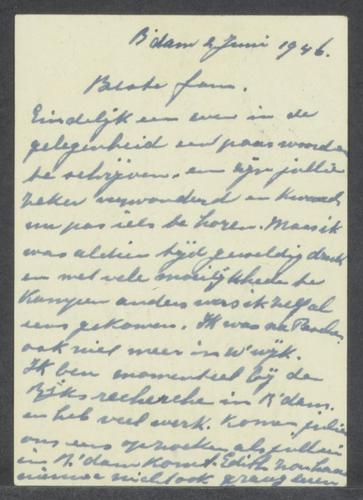 R'dam 2 Juni 1946.
Beste fam.
Eindelijk een even in de
gelegenheid een paar woorden
te schrijven, en zijn jullie
zeker verwonderd en
nu pas iets te horen. Maar ik
was al die tijd geweldig druk
en met vele moeilijkheden te
kampen anders was ik zelf al
eens gekomen. Ik was na Paschen
ook niet meer in W'wijk.
Ik ben momenteel bij de
Rijksrecherche in R'dam.
en heb veel werk. Komen jullie
ons eens opzoeken als jullie
in R'dam komt. Edith
ook graag even